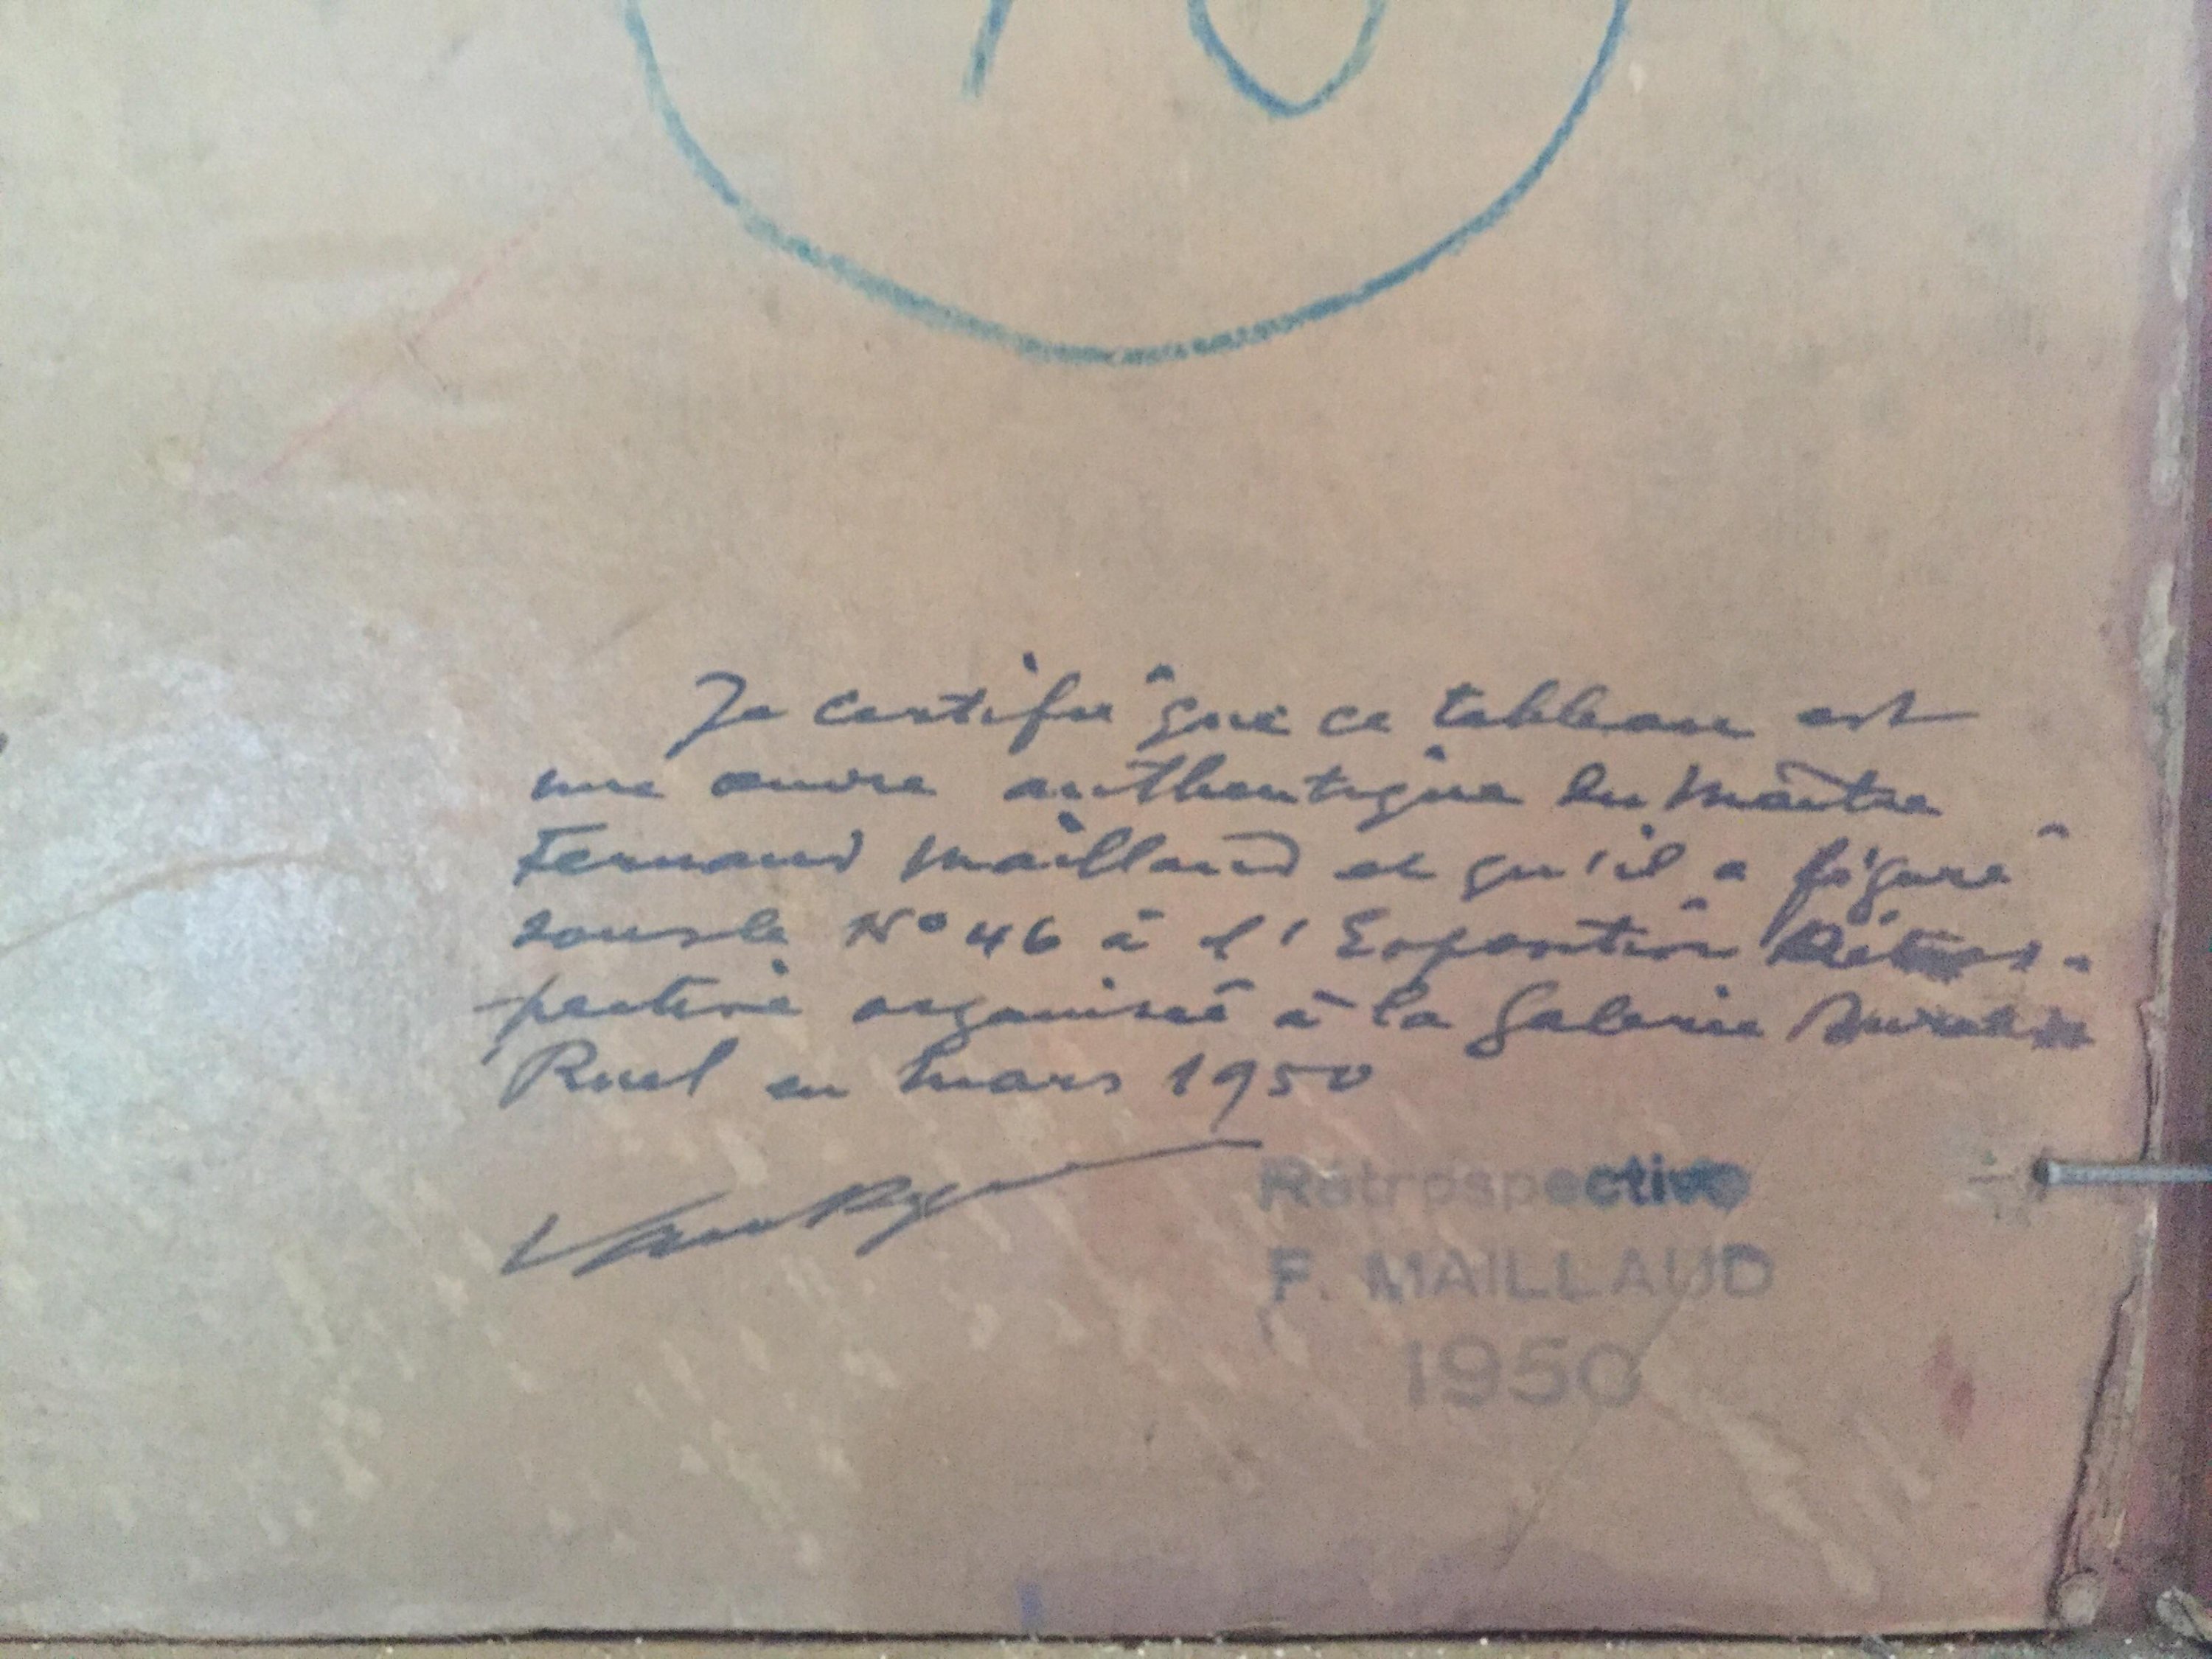 Je certifie que ce tableau est
une œuvre authentique du Maître
Fernand Maillaud et qu'il a figuré
sous le N° 46 à l'Exposition Rétros-
pective organisée à la Galerie Durand
Ruel en mars 1950
Rétrospective
F. MAILLAUD
1950